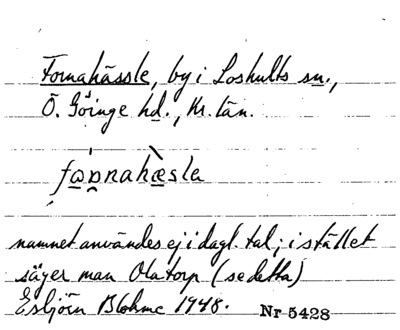 Fornahässle, by i Loshults sn.,
Ö. Göinge hd., Kr. län.
namnet användes ej i dagl. tal; i stället
säger man Olatorp (se detta)
Esbjörn Blohmé 1948. Nr 5428